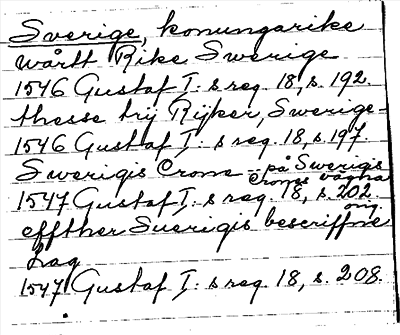 Sverige, konungarike
wårtt Rike Swerige
1546 Gustaf I:s reg. 18, s. 192.
thesse trij Rijker, Swerige -
1546 Gustaf I:s reg. 18, s. 197
Swerigis Crone - på Swerigs
Crones vägna
1547 Gustaf I:s reg. 18, s. 202
effther Suerigis bescriffne
Lag
1547 Gustaf I:s reg. 18, s. 208.